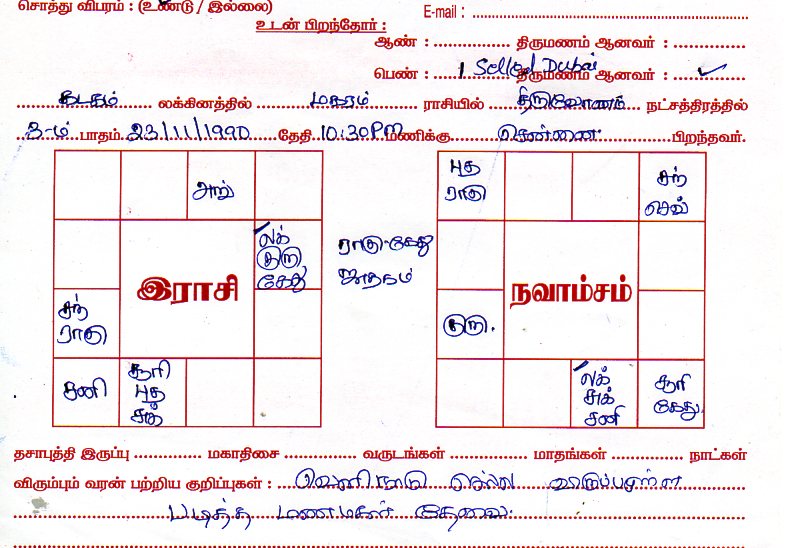 சொத்து விபரம் : (உண்டு / இல்லை)
E-mail :
உடன் பிறந்தோர் :
ஆண் : திருமணம் ஆனவர் :
பெண் : 1 திருமணம் ஆனவர் : ✓
கடகம் லக்கினத்தில் மகரம் ராசியில் திருவோணம் நட்சத்திரத்தில்
3-ம் பாதம் 23/11/1990 தேதி 10:30 PM மணிக்கு சென்னை பிறந்தவர்.
செவ்
லக்
குரு
கேது
சந்
ராகு
சனி
சூரி
புத
சுக்
இராசி
ராகு-கேது
ஜாதகம்
புத
ராகு
சந்
செவ்
குரு.
லக்
சுக்
சனி
சூரி
கேது
நவாம்சம்
தசாபுத்தி இருப்பு மகாதிசை வருடங்கள் மாதங்கள் நாட்கள்
விரும்பும் வரன் பற்றிய குறிப்புகள் : வெளிநாடு செல்ல விருப்பமுள்ள
படித்த மணமகன் தேவை.